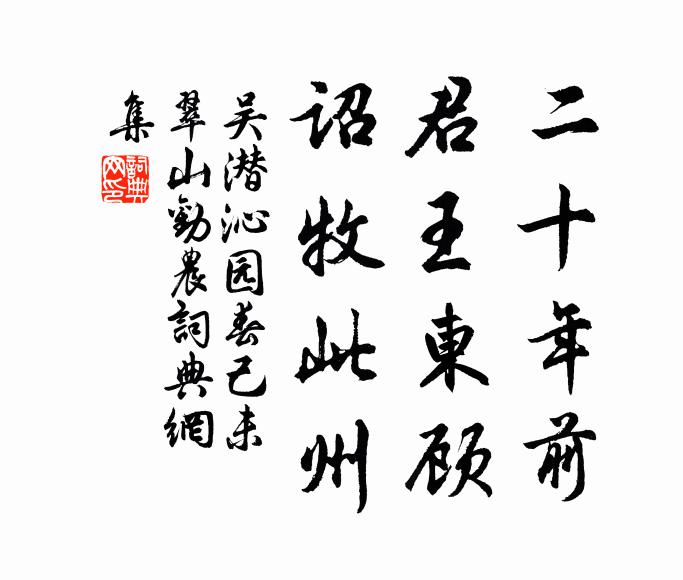 二十年前
君王東顾
詔牧此州
吴潜沁园春己未
翠山勸農詞典網
集
詞典
网印